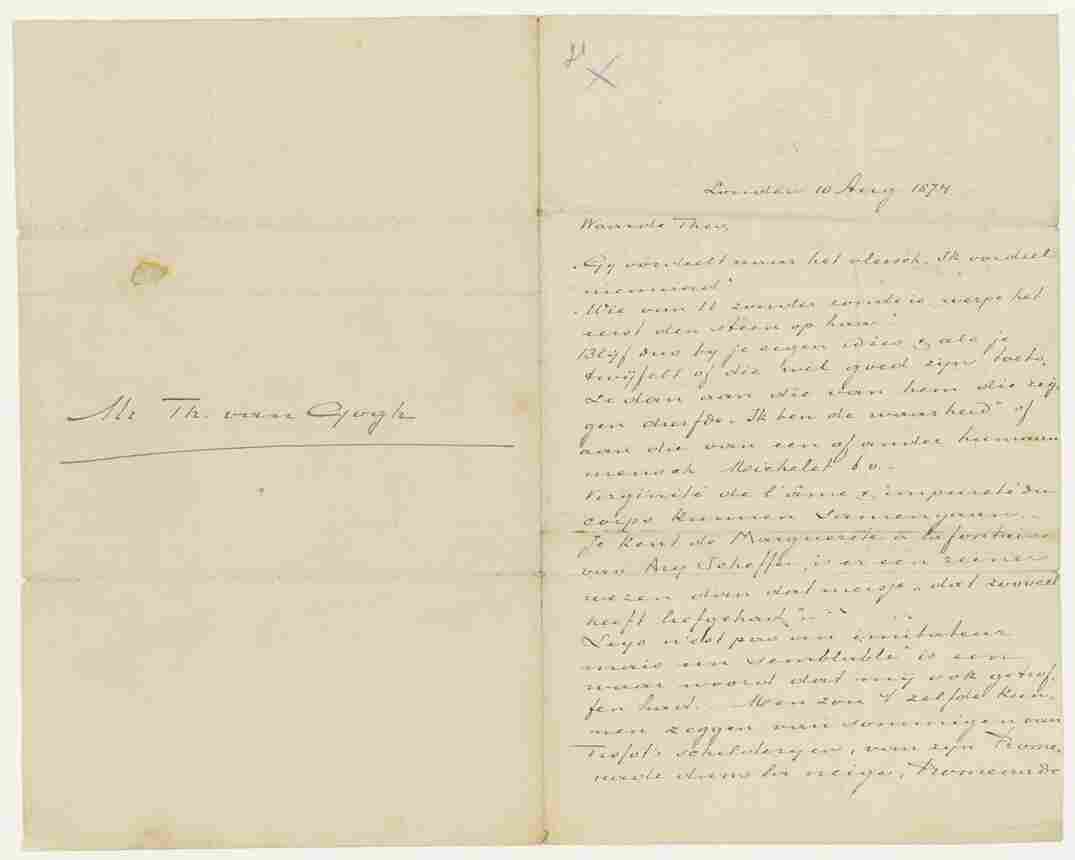 Mr Th. van Gogh
London 10 Aug 1874
Waarde Theo,
"Gij oordeelt naar het vleesch. Ik oordeel
niemand"
"Wie van U zonder zonde is werpe het
eerst den steen op haar."
Blijf dus bij je eigen idées & als je
twijfelt of die wel goed zijn toets,
ze dan aan die van hem die zeg-
gen durfde "Ik ben de waarheid" of
aan die van een of ander humaan
mensch Michelet b v.–
Virginité de l'âme & impureté du
corps kunnen samengaan.
Je kent de Marguerite à la fontaine
van Ary Scheffer, is er een reener
wezen dan dat meisje "dat zooveel
heeft liefgehad".
"Leys n'est pas un imitateur
mais un semblable" is een
waar woord dat mij ook getrof-
fen had. Men zou 't zelfde kun-
nen zeggen van sommigen van
Tissot's schilderijen, van zijn Prome-
nade dans la neige, Promenade